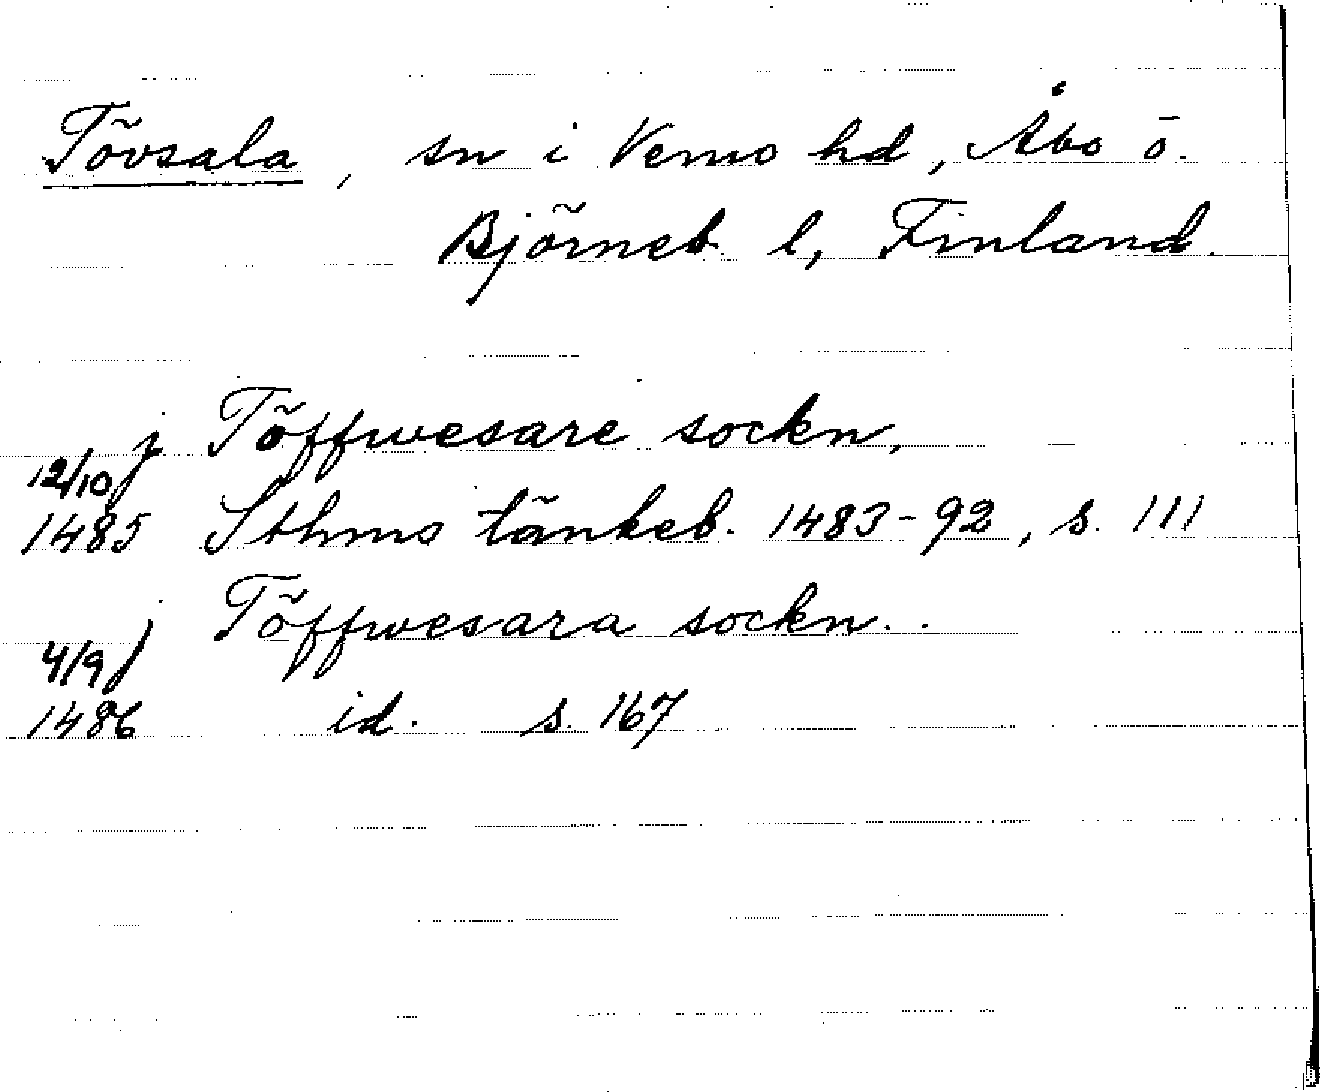 Tövsala, sn i Vemo hd, Åbo o.
Björneb. l, Finland.
j Töffwesare sockn,
12/10
1485 Sthms tänkeb. 1483-92, s. 111
j Töffwesara sockn..
4/9
1486 id. s. 167